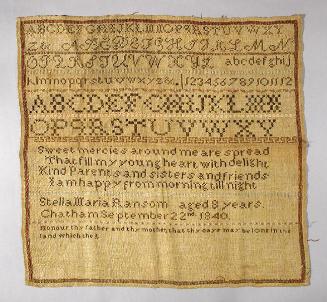 ABCDEFGHIJKLMNOPQRSTUVWXY
Z& ABCDEFGHIJKLMN
OPQRSTUVWXYZ abcdefghij
klmnopqrstuvwxyz& 123456789101112
ABCDEFGHIJKLMN
OPQRSTUVWXY
Sweet mercies around me are spread
That fill my young heart with delight
Kind Parents and sisters and friends
I am happy from morning till night
Stella Maria Ransom aged 8 years.
Chatham September 22nd 1840.
Honour thy father and thy mother, that thy days may be long in the
land which the